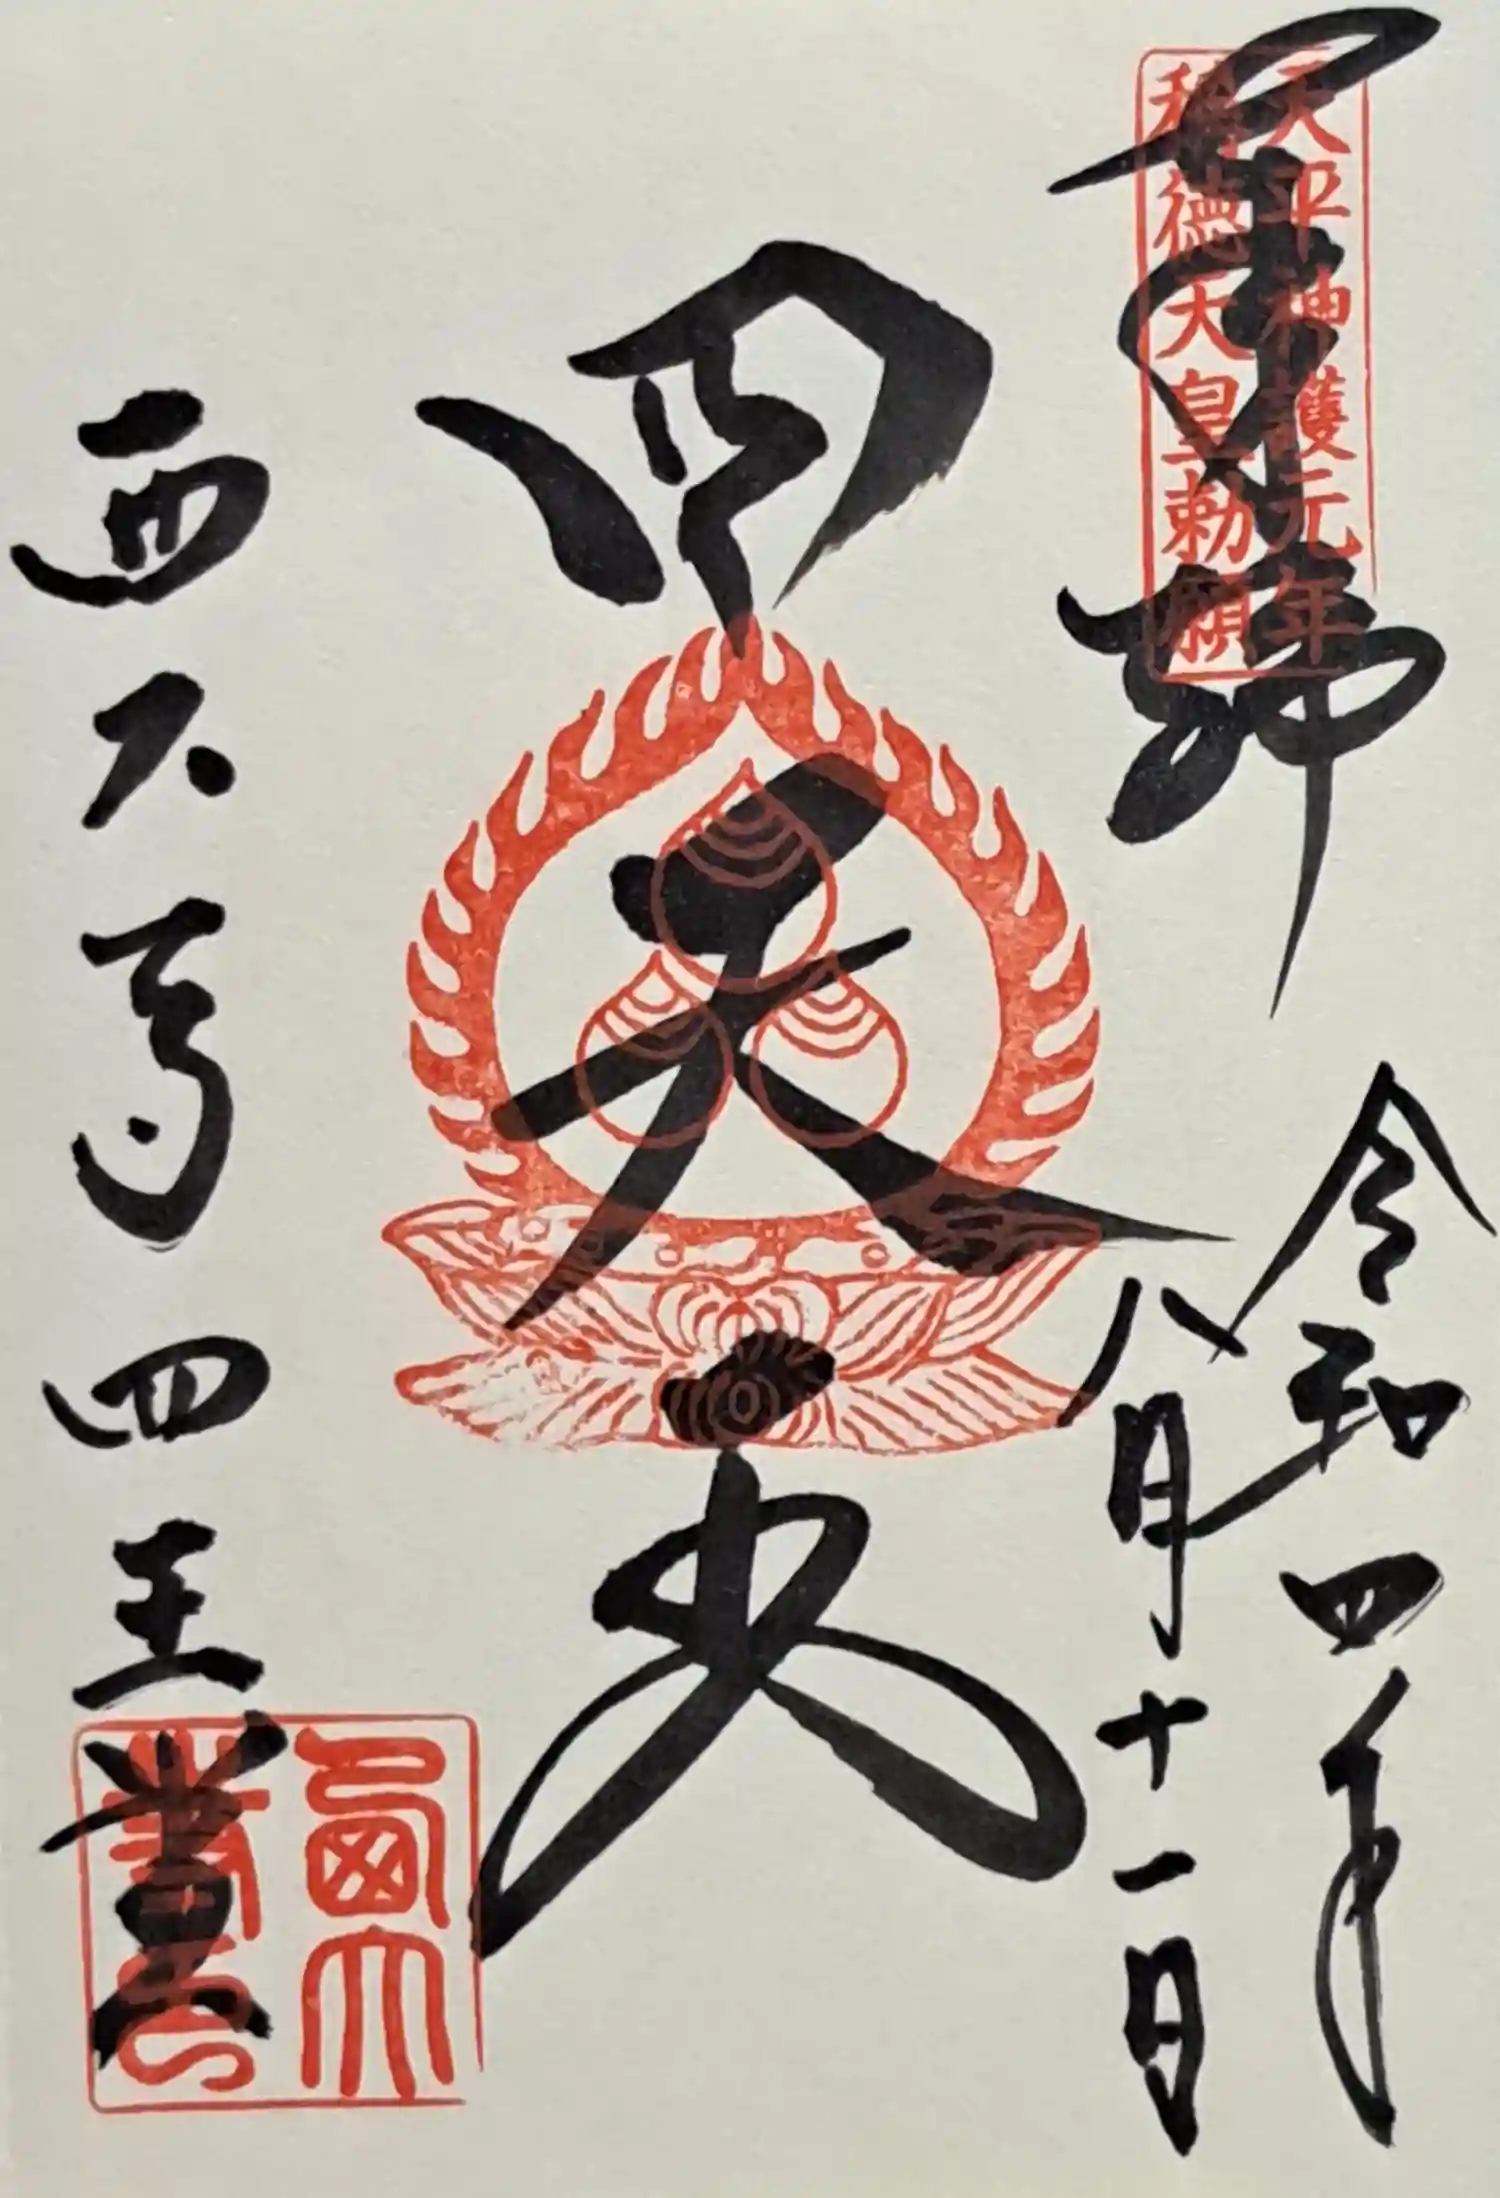 奉拝
天平神護元年
称徳天皇勅願
令和四年
八月十一日
四天王
西大寺四王堂
西大